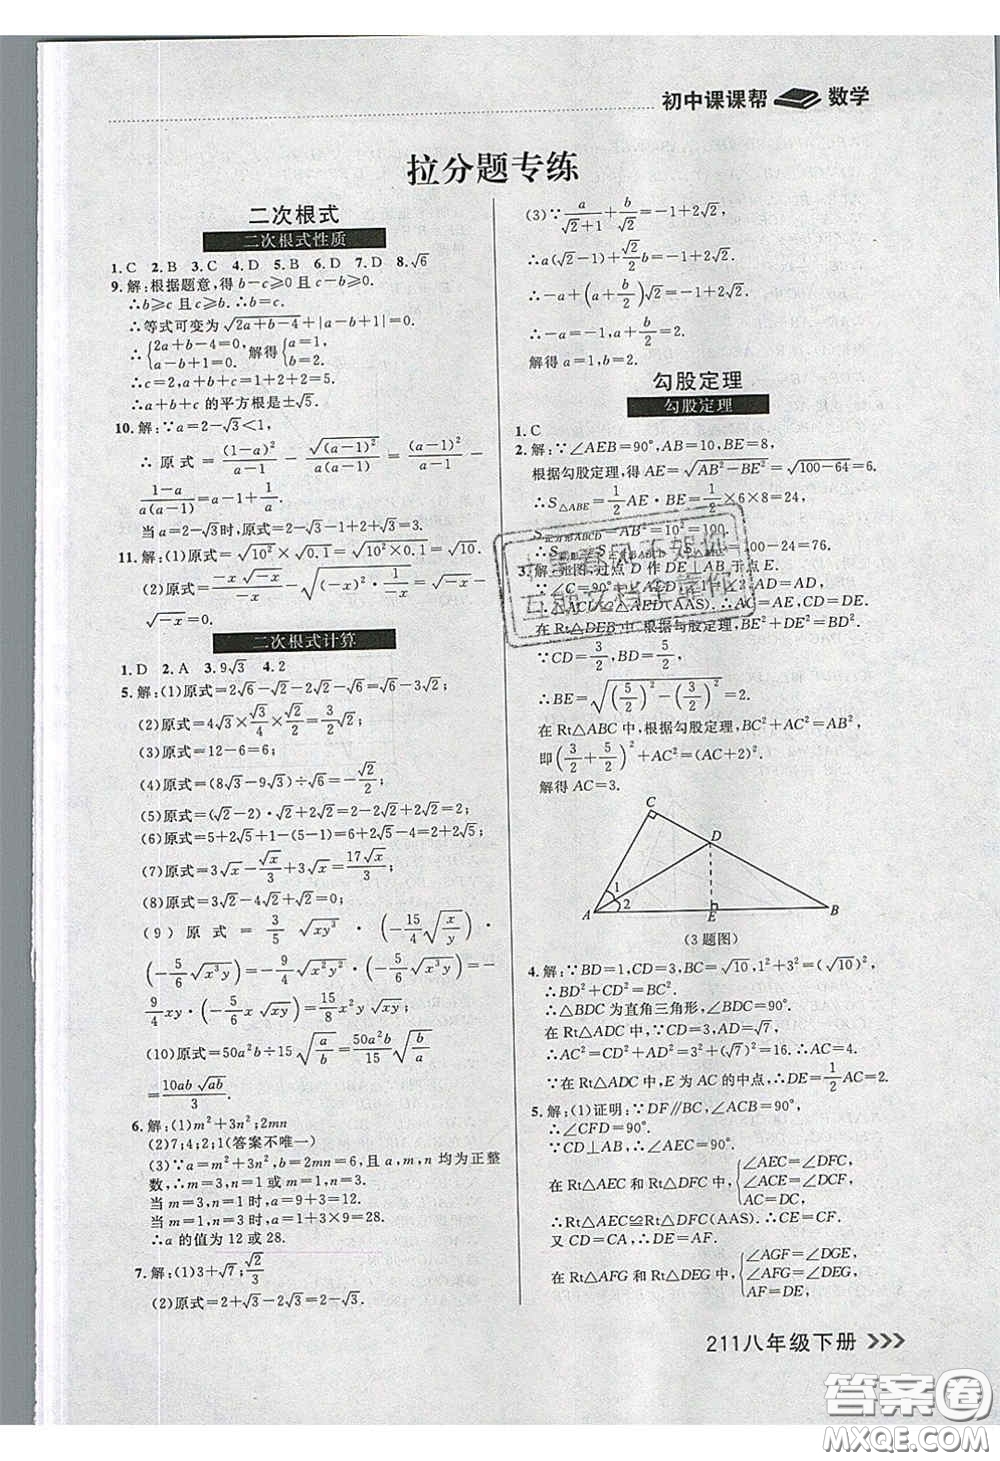 初中课课帮 数学
拉分题专练
二次根式
二次根式性质
1.C 2.B 3.C 4.D 5.B 6.D 7.D 8.√6
9.解:根据题意,得 b−c⩾0 且 c−b⩾0.
∴b⩾c 且 c⩾b. ∴b=c.
∴等式可变为 √(2a+b−4)+|a−b+1|=0.
∴{2a+b−4=0, a−b+1=0. 解得{a=1, b=2.
∴c=2,a+b+c=1+2+2=5.
∴a+b+c 的平方根是±√5.
10.解:∵a=2−√3<1,
∴原式=(1−a)²/(a−1) − √((a−1)²)/(a(a−1)) = (a−1)²/(a−1) −
(1−a)/(a(a−1))=a−1+1/a.
当 a=2−√3时,原式=2−√3−1+2+√3=3.
11.解:(1)原式=√(10²×0.1)=√(10²×0.1)=√10.
(2)原式=(−x√(−x))/(−x)−√((−x)²·1/(−x))=√(−x)−
√(−x)=0.
二次根式计算
1.D 2.A 3.9√3 4.2
5.解:(1)原式=2√6−√2−2√2−√6=√6−3√2;
(2)原式=4√3×√3/4×√2/2=3/2√2;
(3)原式=12−6=6;
(4)原式=(8√3−9√3)÷√6=−√2/2;
(5)原式=(√2−2)·√2+2√2=2−2√2+2√2=2;
(6)原式=5+2√5+1−(5−1)=6+2√5−4=2+2√5;
(7)原式=3√x−√x/3+3√x=17√x/3;
(8)原式=3√2−4√2+√2=0;
(9)原式=3/5√(xy³)·(−15/4√(x/y))
·(−5/6√(x³y))=−9/4√(x²y²)·(−5/6√(x³y))=−
9/4xy·(−5/6x√(xy))=15/8x²y√(xy);
(10)原式=50a²b÷15√(a/b)=50a²b/15√(b/a)
=10ab√(ab)/3.
6.解:(1)m²+3n²;2mn
(2)7;4;2;1(答案不唯一)
(3)∵a=m²+3n²,b=2mn=6,且 a,m,n 均为正整
数,∴m=3,n=1 或 m=1,n=3.
当 m=3,n=1 时,a=9+3=12.
当 m=1,n=3 时,a=1+3×9=28.
∴a 的值为 12 或 28.
7.解:(1)3+√7;√2/3
(2)原式=2+√3−2√3=2−√3.
(3)∵a/(√2+1)+b/√2=−1+2√2,
∴a(√2−1)+√2/2b=−1+2√2.
∴−a+(a+b/2)√2=−1+2√2.
∴−a=−1,a+b/2=2.
解得 a=1,b=2.
勾股定理
勾股定理
1.C
2.解:∵∠AEB=90°,AB=10,BE=8,
根据勾股定理,得 AE=√(AB²−BE²)=√(100−64)=6.
∴S△ABE=1/2AE·BE=1/2×6×8=24,
S正方形ABCD=AB²=10²=100.
=100−24=76.
3.解:如图,过点 D 作 DE⊥AB 于点 E.
∵∠C=90°,∠1=∠2,AD=AD,
∴△ACD≌△AED(AAS). ∴AC=AE,CD=DE.
在 Rt△DEB 中,根据勾股定理,BE²+DE²=BD².
∵CD=3/2,BD=5/2,
∴BE=√((5/2)²−(3/2)²)=2.
在 Rt△ABC 中,根据勾股定理,BC²+AC²=AB²,
即(3/2+5/2)²+AC²=(AC+2)².
解得 AC=3.
C
D
1
2
A
E
B
(3题图)
4.解:∵BD=1,CD=3,BC=√10,1²+3²=(√10)²,
∴BD²+CD²=BC².
∴△BDC 为直角三角形,∠BDC=90°.
在 Rt△ADC 中,∵CD=3,AD=√7,
∴AC²=CD²+AD²=3²+(√7)²=16. ∴AC=4.
∵在 Rt△ADC 中,E 为 AC 的中点,∴DE=1/2AC=2.
5.解:(1)证明:∵DF∥BC,∠ACB=90°,
∴∠CFD=90°.
∵CD⊥AB,∴∠AEC=90°.
在 Rt△AEC 和 Rt△DFC 中,{∠AEC=∠DFC, ∠ACE=∠DCF, AC=DC.
∴Rt△AEC≌Rt△DFC(AAS). ∴CE=CF.
又 CD=CA,∴DE=AF.
在 Rt△AFG 和 Rt△DEG 中,{∠AGF=∠DGE, ∠AFG=∠DEG, AF=DE,
211八年级下册
答案圈
MXQE.COM